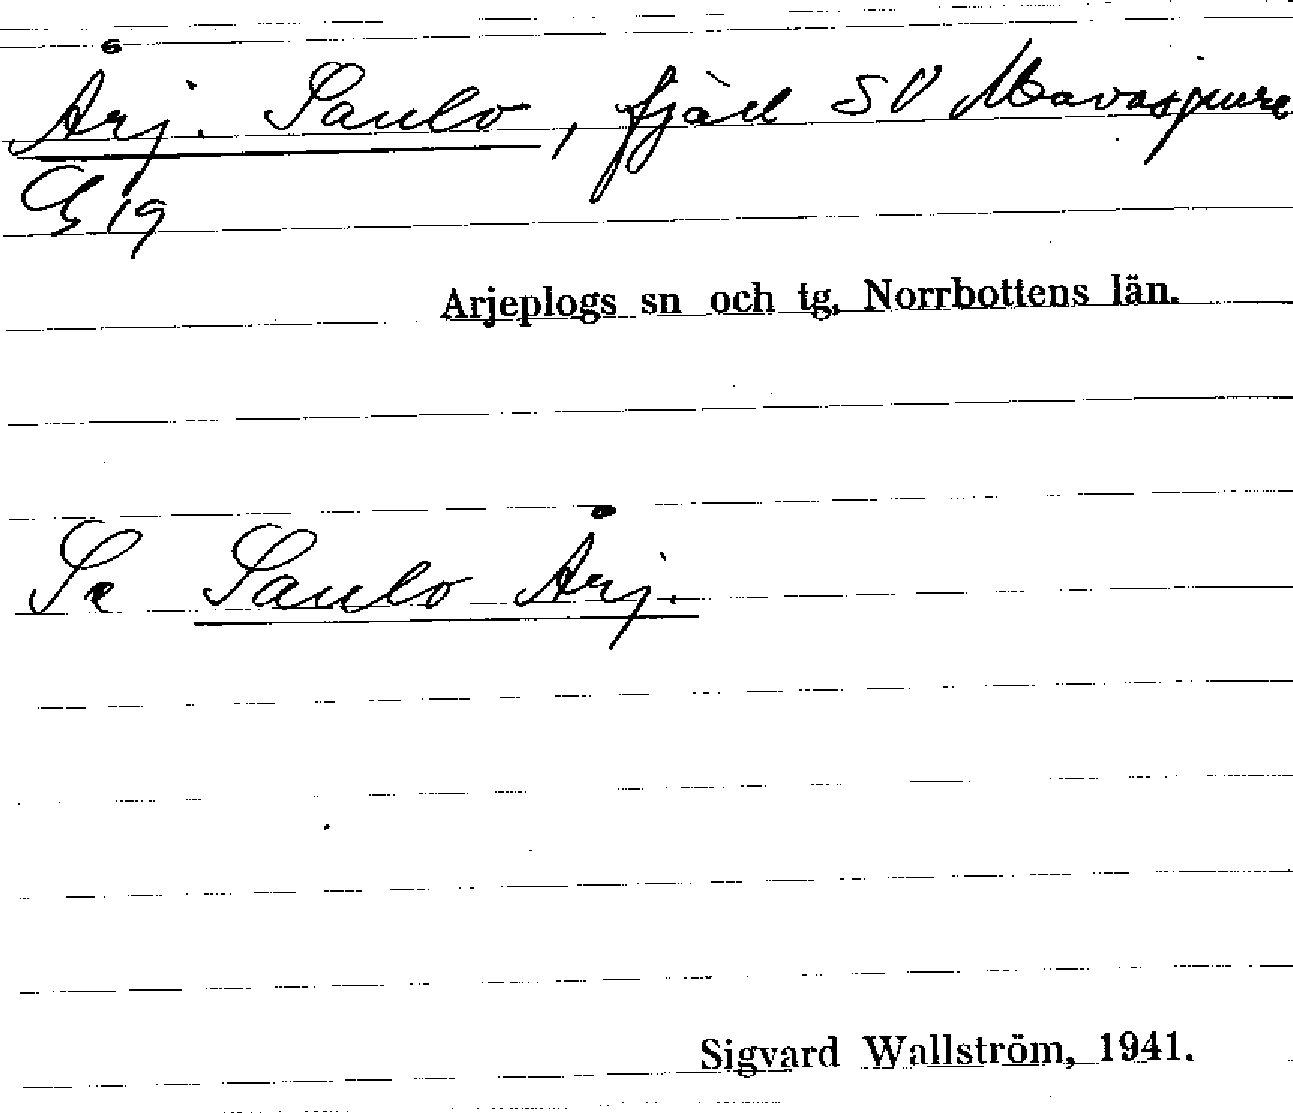 Årj. Saulo, fjäll SV Mavasjaure
G 19
Arjeplogs sn och tg, Norrbottens län.
Se Saulo Årj.
Sigvard Wallström, 1941.